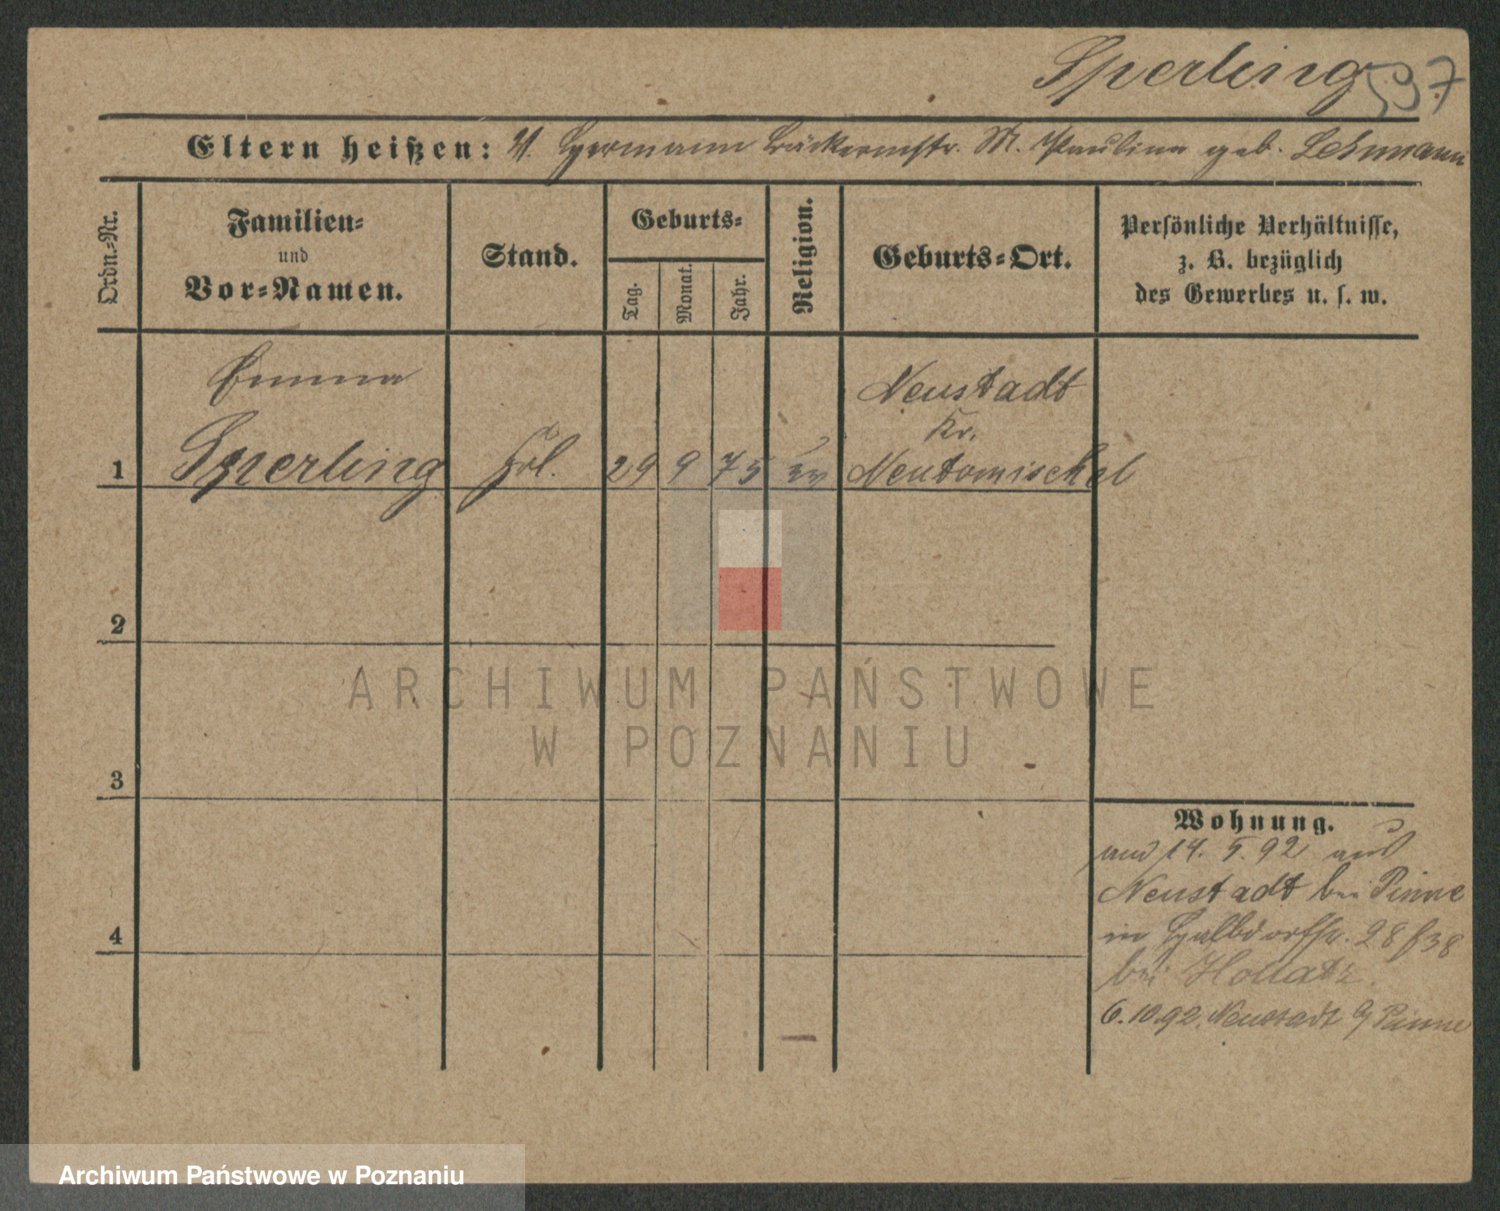 Sperling 597
Eltern heißen: V. Hermann Bäckermstr. M. Pauline geb. Lehmann
Ordn.-Nr.
Familien-
und
Vor-Namen.
Stand.
Geburts-
Tag.
Monat.
Jahr.
Religion.
Geburts-Ort.
Persönliche Verhältnisse,
z. B. bezüglich
des Gewerbes u. s. w.
Emma
Neustadt
Kr.
1 Sperling Frl. 29 9 75 ev Neutomischel
2
3
4
ARCHIWUM PAŃSTWOWE
W POZNANIU
Wohnung.
14. 5. 92 aus
Neustadt bei Pinne
in Halbdorfstr. 28
bei Hollatz.
6.10.92. Neustadt b/ Pinne
Archiwum Państwowe w Poznaniu